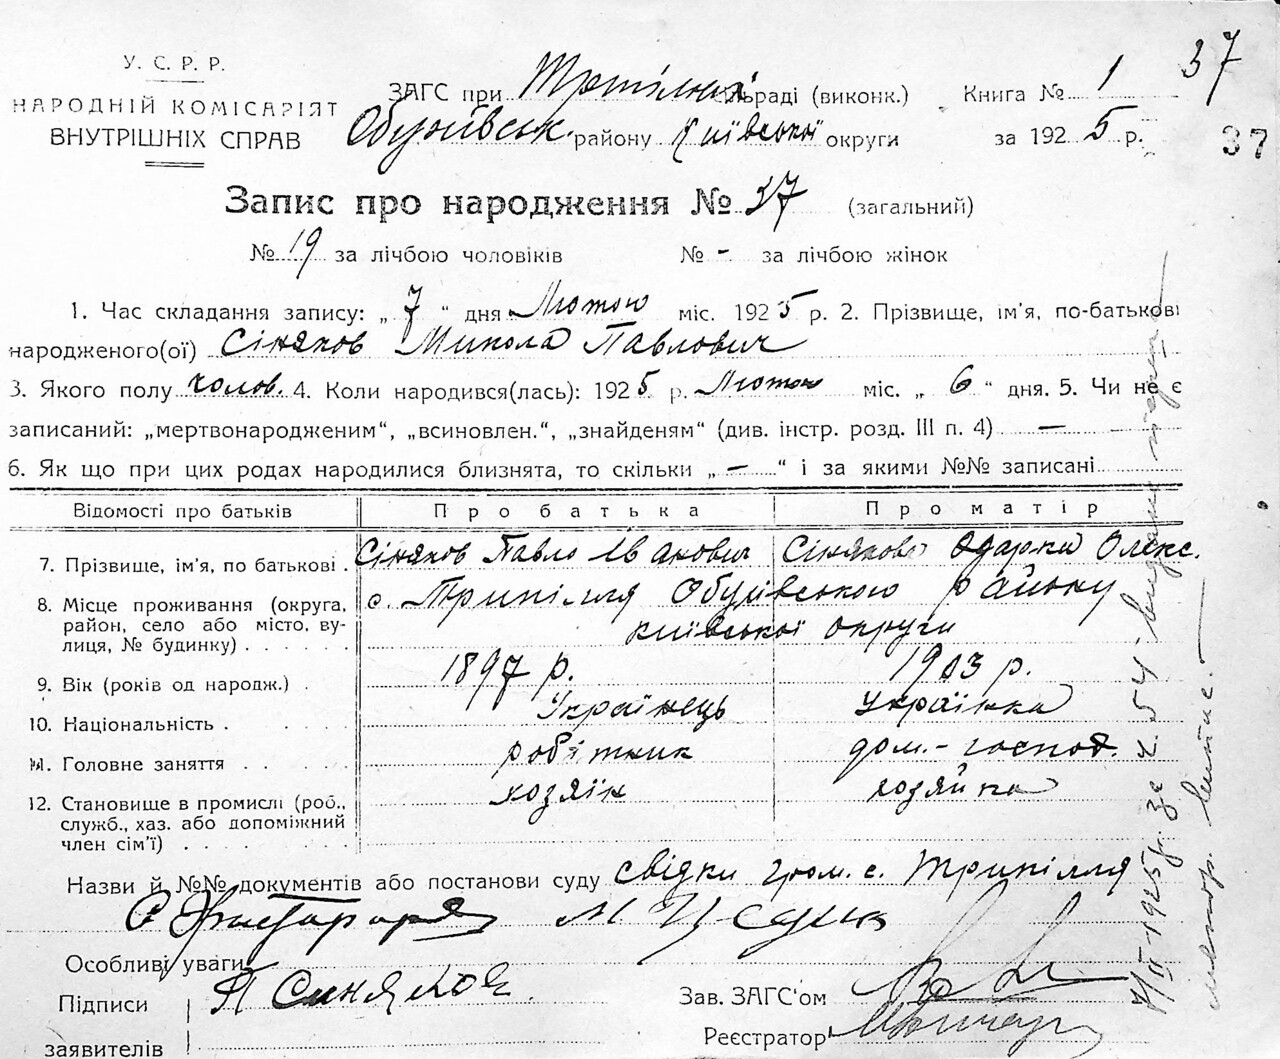 У. С. Р. Р.
НАРОДНІЙ КОМІСАРІЯТ
ВНУТРІШНІХ СПРАВ
ЗАГС при раді (виконк.) Книга № 1 37
Обухівськ. району Київської округи за 1925 р. 37
Запис про народження № 37 (загальний)
№ 19 за лічбою чоловіків № - за лічбою жінок
1. Час складання запису: „ 7 “ дня Лютого міс. 1925 р. 2. Прізвище, ім'я, по-батькові
народженого(ої) Сіняков Микола Павлович
3. Якого полу чолов. 4. Коли народився(лась): 1925 р. Лютого міс. „ 6 “ дня. 5. Чи не є
записаний: „мертвонародженим“, „всиновлен.“, „знайденям“ (див. інстр. розд. III п. 4) —
6. Як що при цих родах народилися близнята, то скільки „ — “ і за якими №№ записані
Відомості про батьків Про батька Про матір
7. Прізвище, ім'я, по батькові . Сіняков Павло Іванович Сінякова Одарка Олекс.
8. Місце проживання (округа, район, село або місто, вулиця, № будинку) с. Трипілля Обухівського району
Київської округи
9. Вік (років од народж.) . 1897 р. 1903 р.
10. Національність . Українець Українка
11. Головне заняття робітник дом.-господ.
12. Становище в промислі (роб., служб., хаз. або допоміжний член сім'ї) хозяїн хозяйка
Назви й №№ документів або постанови суду свідки гром. с. Трипілля
Особливі уваги
Підписи П Синяков Зав. ЗАГС'ом
заявителів Реєстратор
7/II-1925р. за ч. 54 видано